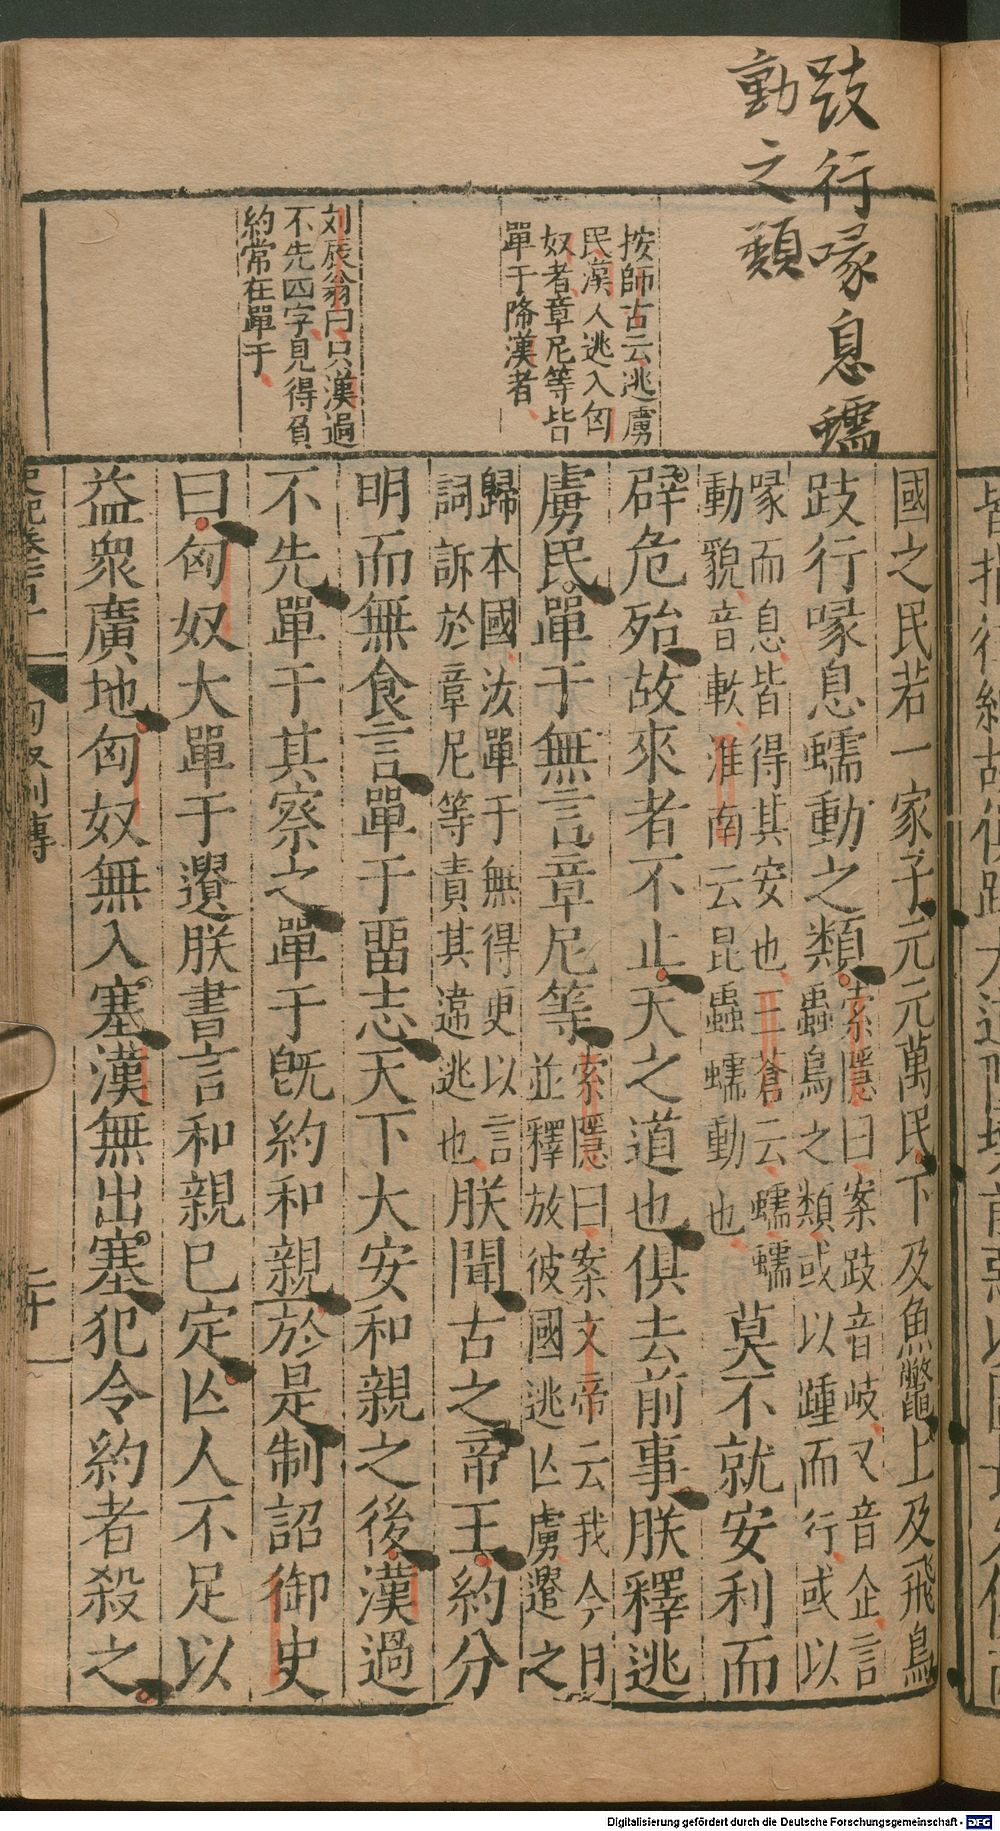 跂行喙息蠕
動之類
按師古云逃虜
民漢人逃入匈
奴者章尼等皆
單于降漢者
刘辰翁曰只漢過
不先四字見得負
約常在單于
國之民若一家子元元萬民下及魚鼈上及飛鳥
跂行喙息蠕動之類索隱曰案跂音岐又音企言
蟲鳥之類或以踵而行或以
喙而息皆得其安也三蒼云蠕蠕
動貌音軟淮南云昆蟲蠕動也
莫不就安利而
辟危殆故來者不止天之道也俱去前事朕釋逃
虜民單于無言章尼等索隱曰案文帝云我今日
並釋放彼國逃亾虜遣之
歸本國汝單于無得更以言
詞訴於章尼等責其違逃也
朕聞古之帝王約分
明而無食言單于畱志天下大安和親之後漢過
不先單于其察之單于旣約和親於是制詔御史
曰匈奴大單于遺朕書言和親已定亾人不足以
益衆廣地匈奴無入塞漢無出塞犯令約者殺之
匈奴列傳
Digitalisierung gefördert durch die Deutsche Forschungsgemeinschaft - DFG